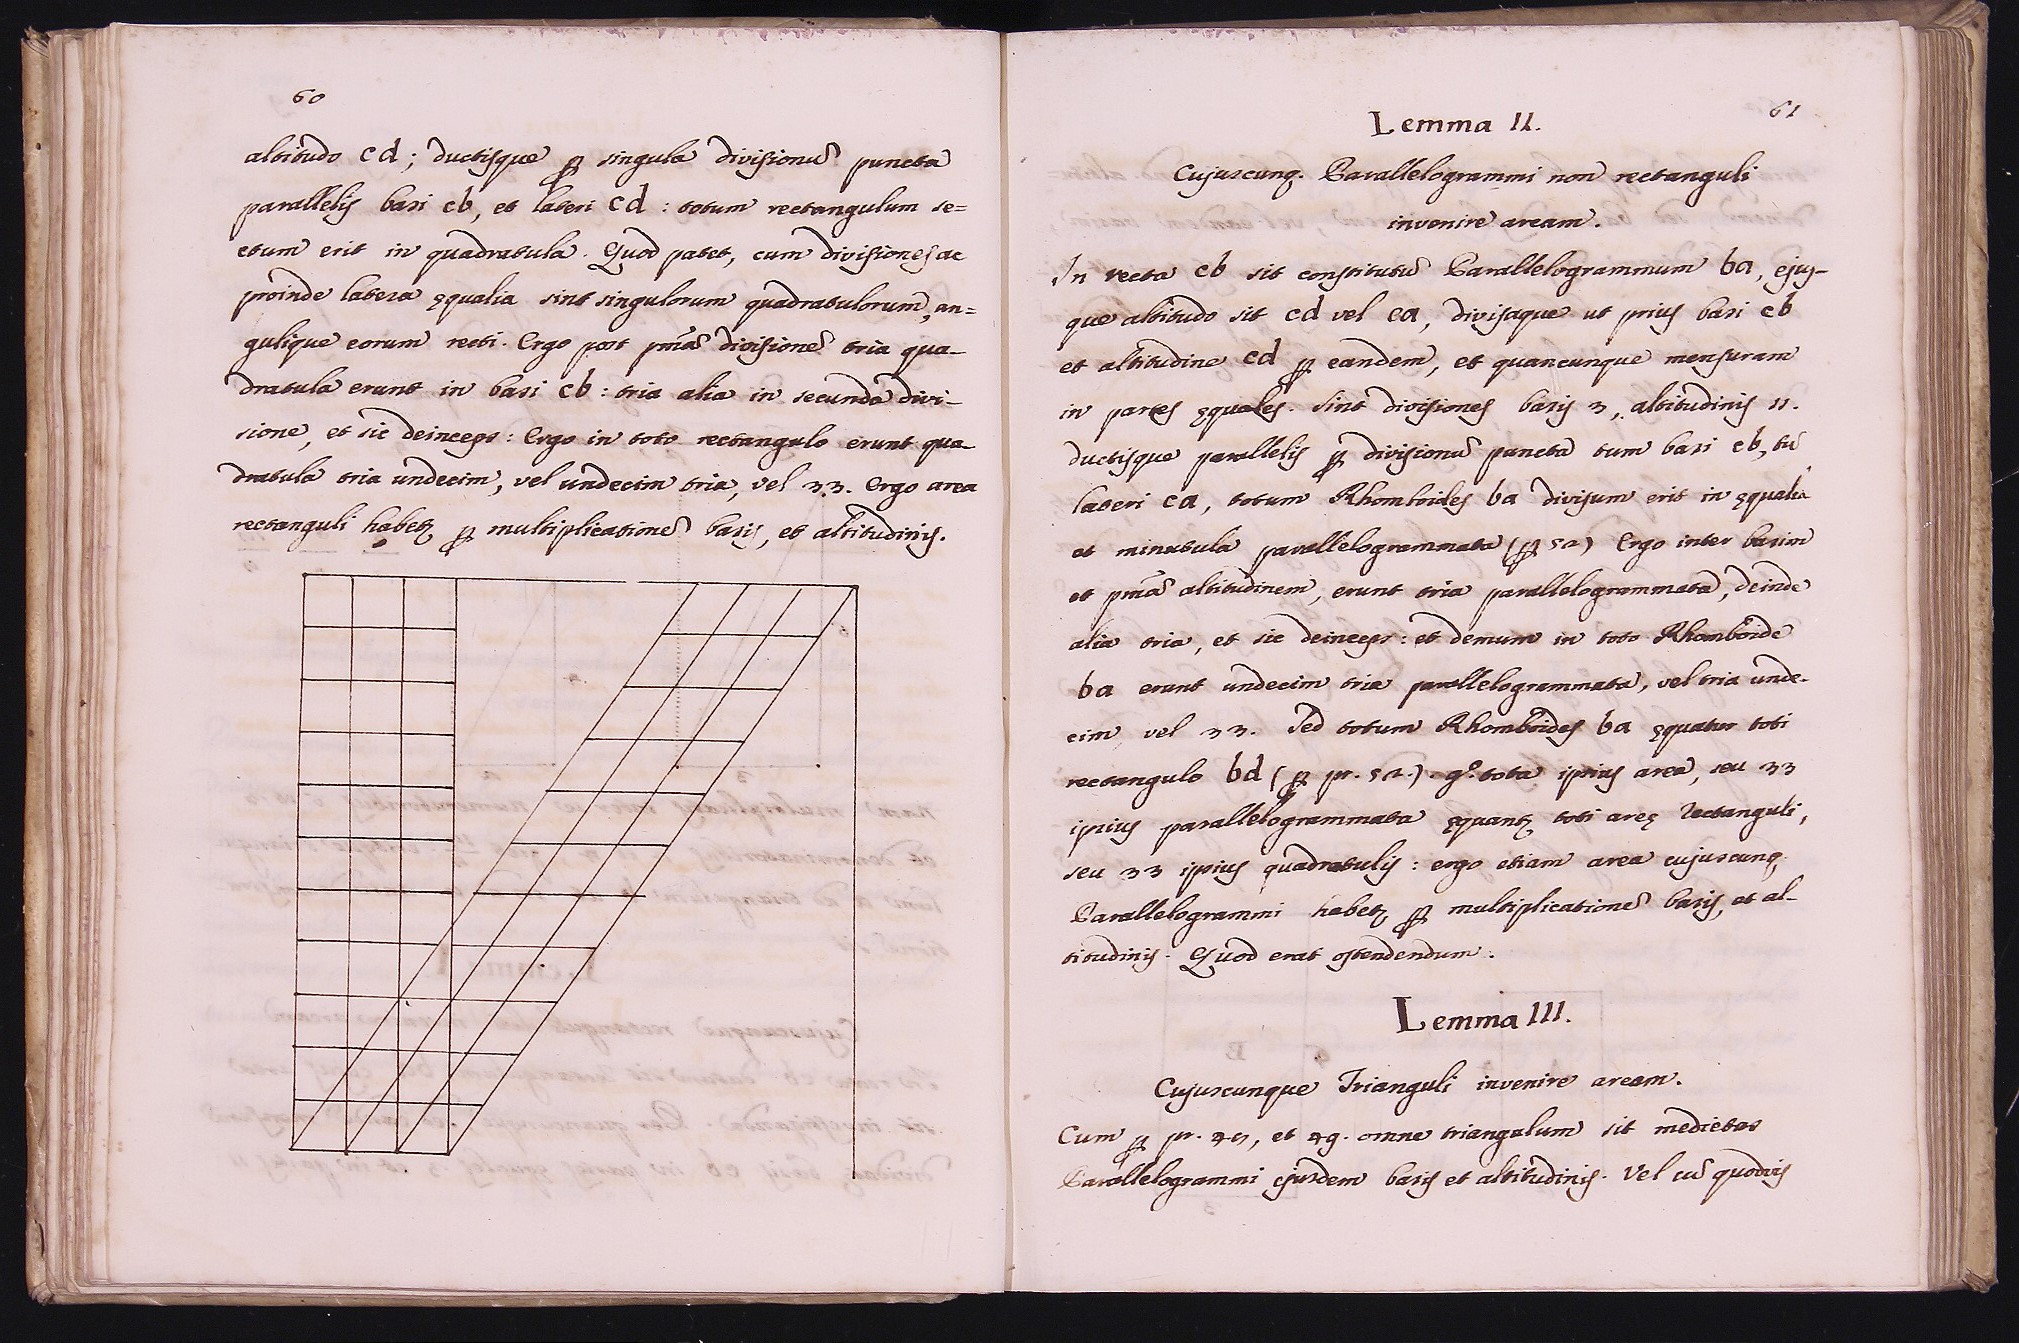 60
altitudo cd; ductisque ꝑ singula divisionũ puncta
parallelis basi cb, et lateri cd: totum rectangulum se=
ctum erit in quadratula. Quod patet, cum divisiones ac
proinde latera ęqualia sint singulorum quadratulorum, an=
gulique eorum recti. Ergo post pm̃ã divisionẽ tria qua-
dratula erunt in basi cb: tria alia in secunda divi-
sione, et sic deinceps: Ergo in toto rectangulo erunt qua-
dratula tria undecim, vel undecim tria, vel 33. Ergo area
rectanguli habetʒ ꝑ multiplicationẽ basis, et altitudinis.
61
Lemma II.
Cujuscunqʒ Parallelogrammi non rectanguli
invenire aream.
In recta cb sit constitutũ Parallelogrammum ba, ejus-
que altitudo sit cd vel ea, divisaque ut prius basi cb
et altitudine cd ꝑ eandem, et quancunque mensuram
in partes ęquales. Sint divisiones basis 3, altitudinis 11.
ductisque parallelis ꝑ divisionũ puncta tum basi cb, tũ
lateri ca, totum Rhomboides ba divisum erit in ęqualia
et minutula parallelogrammata (ꝑ 52) Ergo inter basim
et pm̃ã altitudinem, erunt tria parallelogrammata, deinde
alia tria, et sic deinceps: et demum in toto Rhomboide
ba erunt undecim tria parallelogrammata, vel tria unde-
cim vel 33. Sed totum Rhomboides ba ęquatur toti
rectangulo bd (ꝑ pr. 52.). gͦ. tota ipsius area, seu 33
ipsius parallelogrammata ęquantʒ toti areę rectanguli,
seu 33 ipsius quadratulis: ergo etiam area cujuscunqʒ
Parallelogrammi habetʒ ꝑ multiplicationẽ basis, et al-
titudinis. Quod erat ostendendum.
Lemma III.
Cujuscunque Trianguli invenire aream.
Cum ꝑ pr. et omne triangulum sit medietas
Parallelogrammi ejusdem basis et altitudinis. Vel cũ quodvis